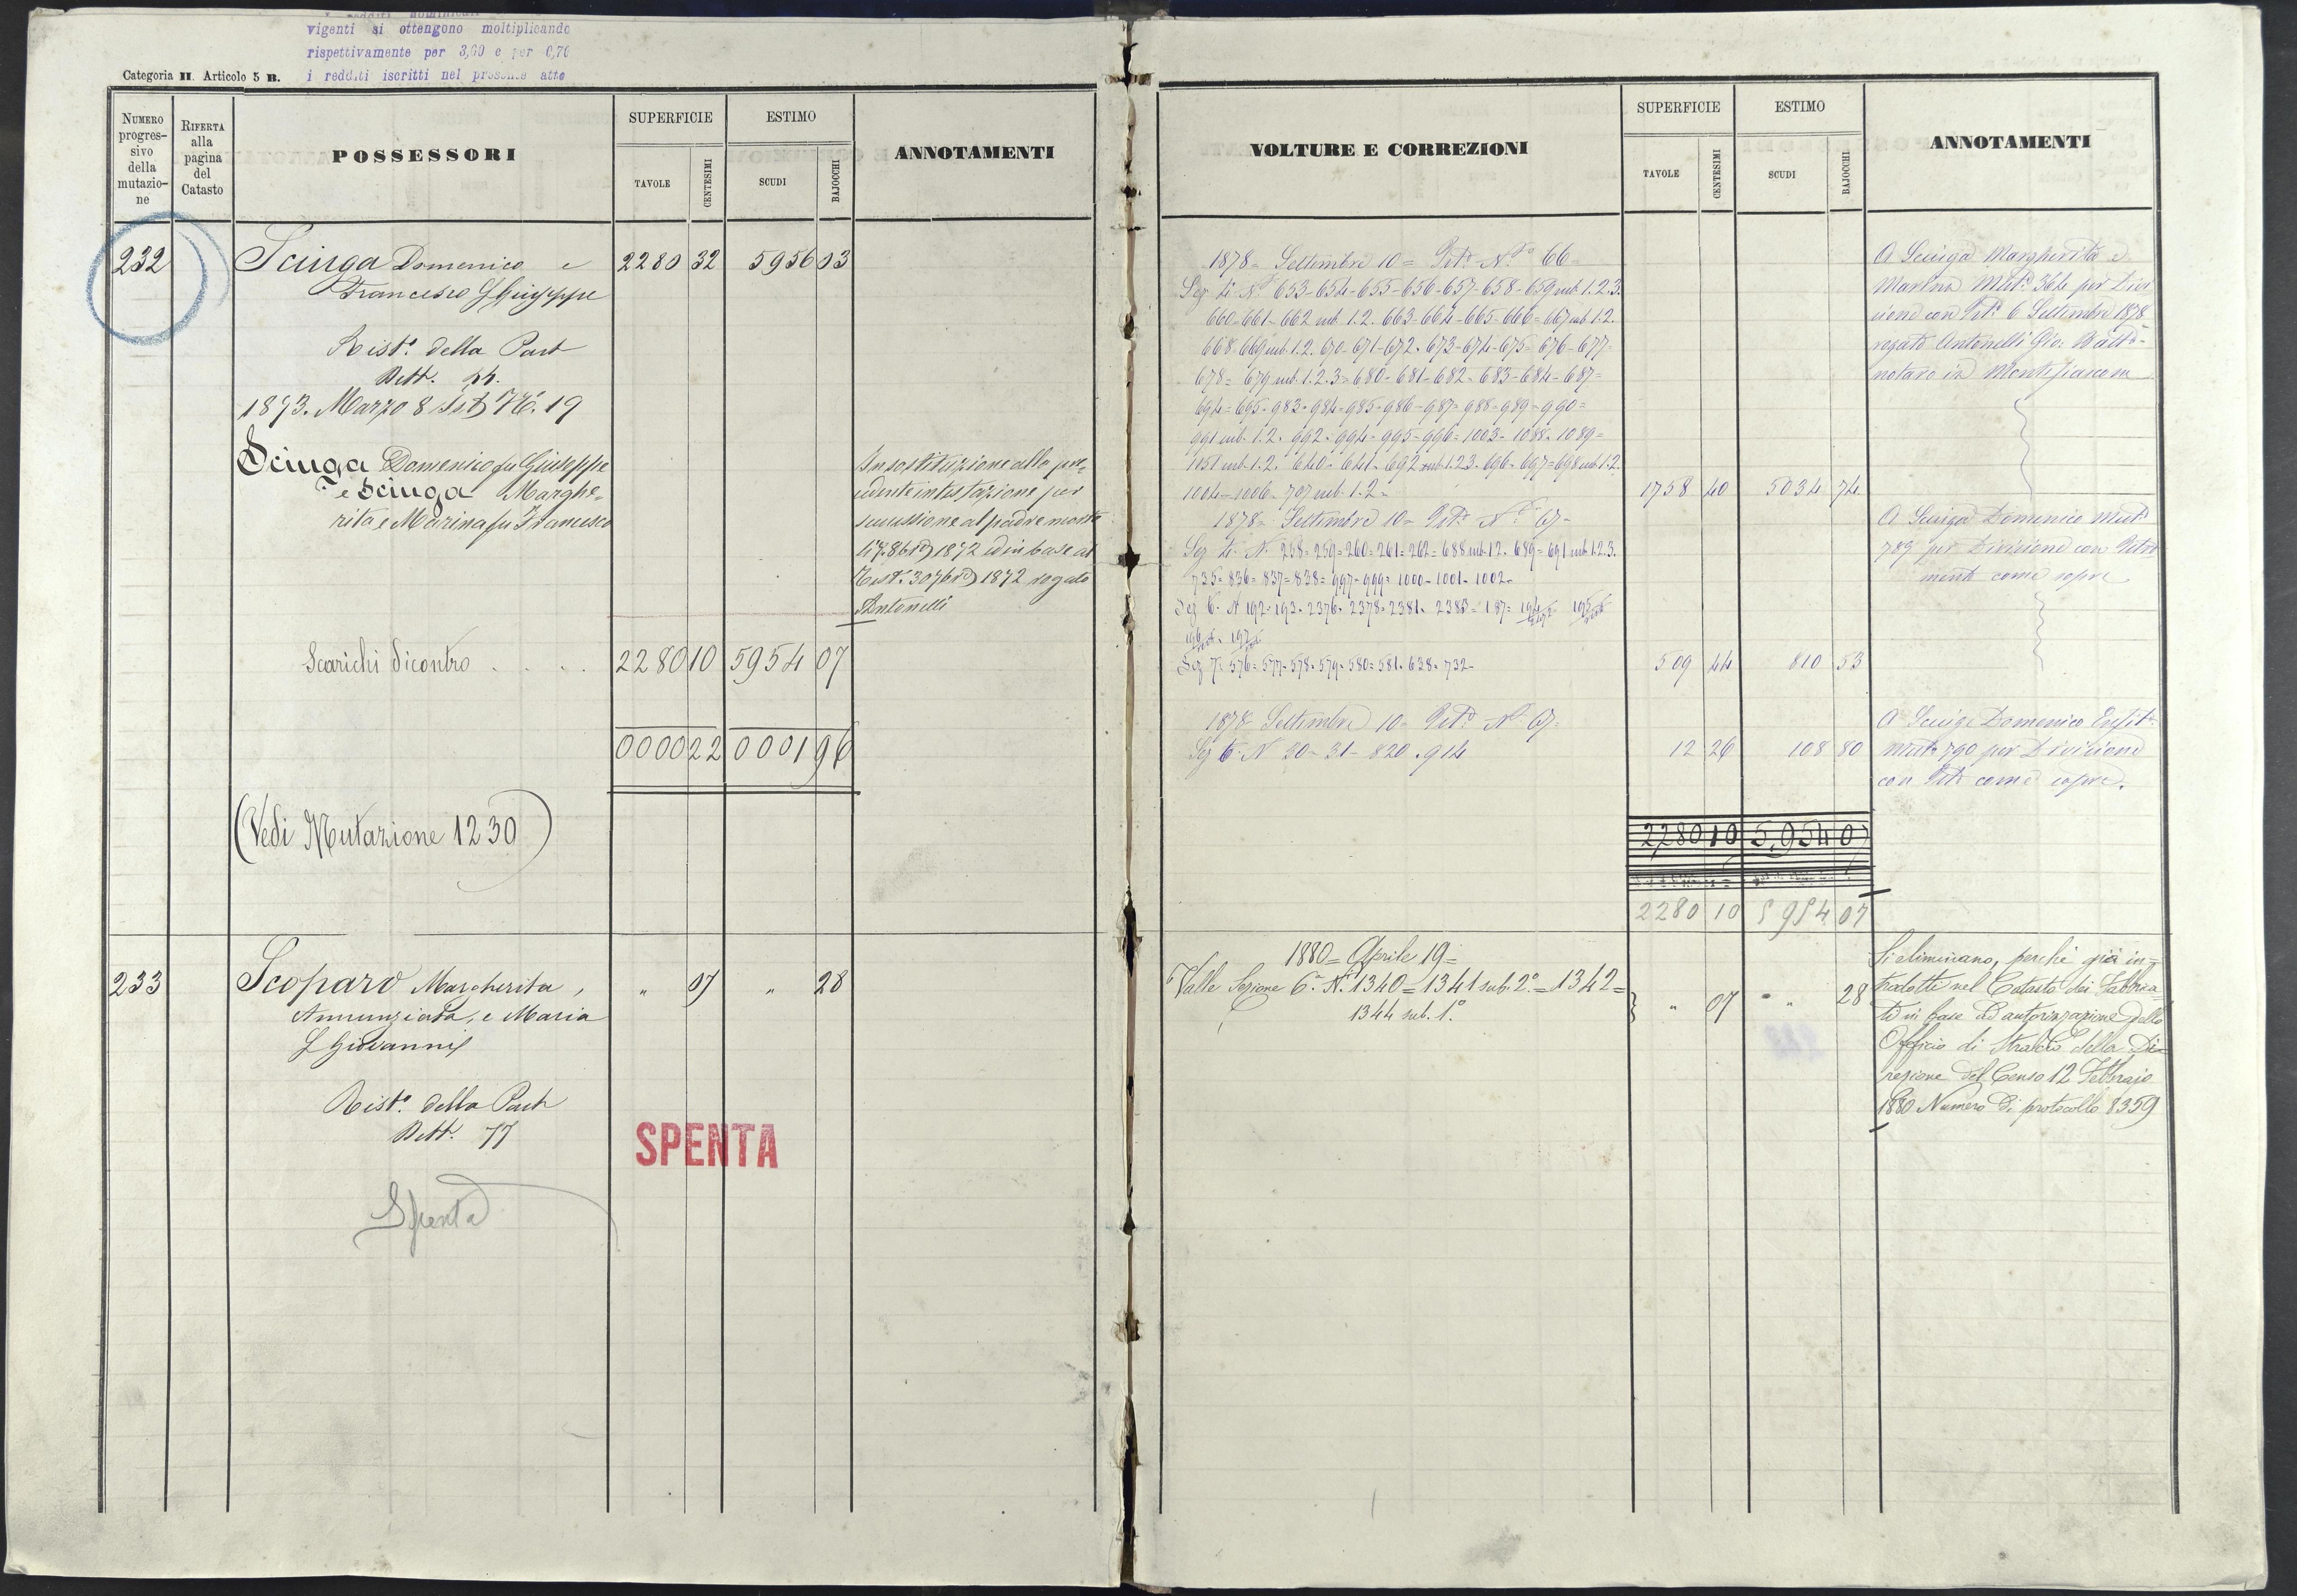 vigenti si ottengono moltiplicando
rispettivamente per 3,60 e per 0,76
i redditi iscritti nel presente atto
Categoria II. Articolo 5 B.
NUMERO progres-sivo della mutazio-ne
RIFERTA alla pagina del Catasto
POSSESSORI
SUPERFICIE
TAVOLE
CENTESIMI
ESTIMO
SCUDI
BAJOCCHI
ANNOTAMENTI
232
Sciuga Domenico e 2280 32 5956 03
Francesco q Giuseppe
Rist.º della Part
Dett.
1873. Marzo 8 Ist. Nº. 19
Sciuga Domenico fu Giuseppe
e Sciuga Marghe-
rita e Marina fu Francesco
In sostituzione alla pre-
cedente intestazione per
successione al padre morto
li 7. 8bre 1872 ed in base al
Test. 30 7bre 1872 rogato
Antonelli
Scarichi dicontro . . . . 2280 10 5954 07
0000 22 0001 96
(Vedi Mutazione 1230)
233
Scoparo Margherita, " 07 " 28
Annunziata, e Maria
q Giovanni
Rist.º della Part
Dett. 77
SPENTA
Spenta
VOLTURE E CORREZIONI
SUPERFICIE
TAVOLE
CENTESIMI
ESTIMO
SCUDI
BAJOCCHI
ANNOTAMENTI
1878= Settembre 10= Ist. Nº 66=
Sez 4. Nº 653-654-655-656-657-658-659 sub. 1.2.3.
660-661-662 sub 1.2. 663-664-665-666-667 sub. 1.2.
668-669 sub. 1.2. 670-671-672-673-674-675-676-677-
678-679 sub. 1.2.3-680-681-682-683-684-687=
694-695-983-984-985-986-987-988-989-990=
991 sub. 1.2. 992-994-995-996-1003-1088-1089=
1151 sub. 1.2. 640-641-692 sub. 1.2.3-696-697-698 sub. 1.2.
1004-1006-707 sub. 1.2= 1758 40 5034 74
A Sciuga Margherita e
Marina Mut. 364 per Divi
sione con Ist. 6 Settembre 1878
rogato Antonelli Gio: Batt.
notaro in Montefiascone
1878= Settembre 10= Ist. Nº 67=
Sez 4. N. 258-259-260-261-262-688 sub. 1.2. 689-691 sub. 1.2.3.
735-836-837-838-997-999-1000-1001-1002-
Sez 6. N 192-193-2376-2378-2381-2383-187-
Sez 7. 576-577-578-579-580-581-638-732- 509 44 810 53
A Sciuga Domenico Mut.
789 per Divisione con Istro
mento come sopra
1878= Settembre 10= Ist. Nº 67=
Sez 6. N 30-31-820-914 12 26 108 80
A Sciuga Domenico Enfit.
Mut. 790 per Divisione
con Ist. come sopra.
2280 10 5,954 07
2280 10 5954 07
1880= Aprile 19=
Valle Sezione 6.ª Nⁱ 1340=1341 sub. 2.º=1342=
1344 sub. 1.º " 07 " 28
Si eliminano, perchè già in-
trodotti nel Catasto dei Fabbrica-
ti in base ad autorizzazione dello
Officio di Stralcio della Di-
rezione del Censo 12 Febbrajo
1880 Numero di protocollo 8359